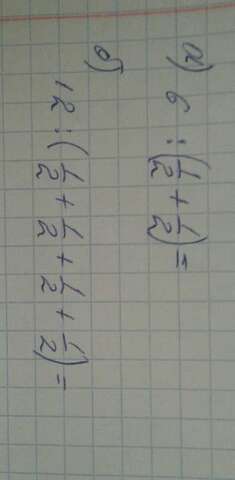 а) 6 : (1/2 + 1/2) =
б)
12 : (1/2 + 1/2 + 1/2 + 1/2) =